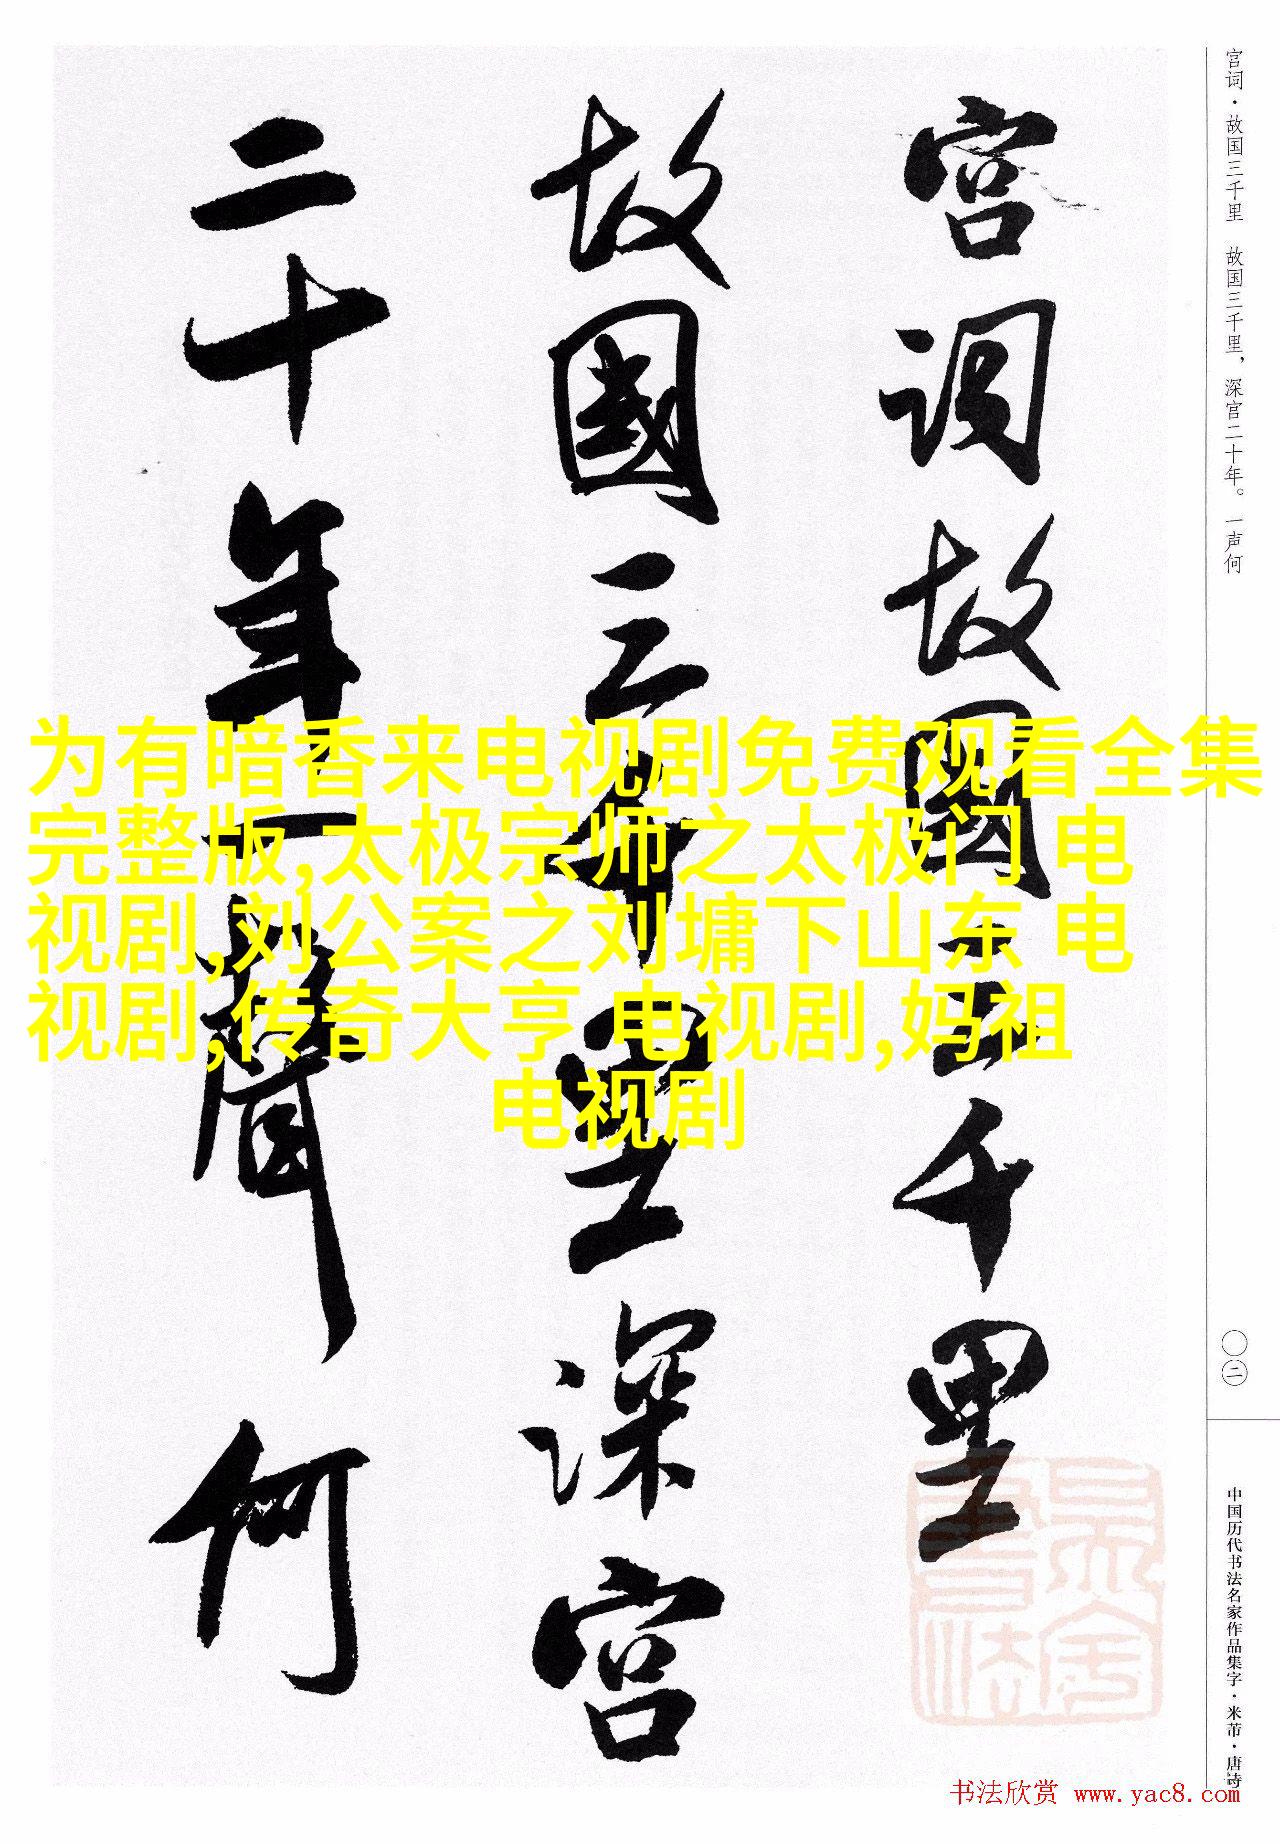 宫词·故国三千里　故国三千里，深宫二十年。一声何
宫词故國三千里
故國三千里深宫
二十年一聲何
为有暗香来电视剧免费观看全集
完整版,太极宗师之太极门 电
视剧,刘公案之刘墉下山东 电
视剧,传奇大亨 电视剧,妈祖
电视剧
〇二
中国历代书法名家作品集字·米芾·唐诗
书法欣赏 www.yac8.com